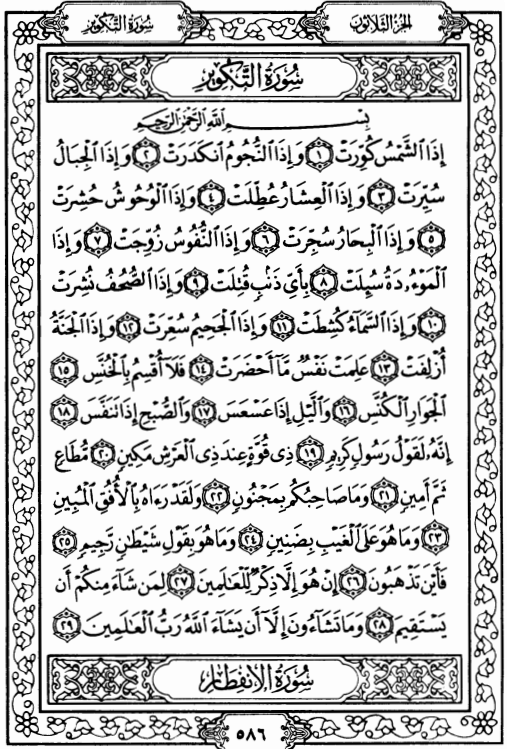 سُورَةُ التَّكْوِيرِ
الجُزْءُ الثَّلَاثُونَ
سُورَةُ التَّكْوِيرِ
بِسْمِ اللَّهِ الرَّحْمَٰنِ الرَّحِيمِ
إِذَا الشَّمْسُ كُوِّرَتْ ١ وَإِذَا النُّجُومُ انكَدَرَتْ ٢ وَإِذَا الْجِبَالُ
سُيِّرَتْ ٣ وَإِذَا الْعِشَارُ عُطِّلَتْ ٤ وَإِذَا الْوُحُوشُ حُشِرَتْ
٥ وَإِذَا الْبِحَارُ سُجِّرَتْ ٦ وَإِذَا النُّفُوسُ زُوِّجَتْ ٧ وَإِذَا
الْمَوْءُۥدَةُ سُئِلَتْ ٨ بِأَيِّ ذَنۢبٍ قُتِلَتْ ٩ وَإِذَا الصُّحُفُ نُشِرَتْ
١٠ وَإِذَا السَّمَآءُ كُشِطَتْ ١١ وَإِذَا الْجَحِيمُ سُعِّرَتْ ١٢ وَإِذَا الْجَنَّةُ
أُزْلِفَتْ ١٣ عَلِمَتْ نَفْسٌ مَّآ أَحْضَرَتْ ١٤ فَلَآ أُقْسِمُ بِالْخُنَّسِ ١٥
الْجَوَارِ الْكُنَّسِ ١٦ وَالَّيْلِ إِذَا عَسْعَسَ ١٧ وَالصُّبْحِ إِذَا تَنَفَّسَ ١٨
إِنَّهُۥ لَقَوْلُ رَسُولٍ كَرِيمٍ ١٩ ذِي قُوَّةٍ عِندَ ذِي الْعَرْشِ مَكِينٍ ٢٠ مُّطَاعٍ
ثَمَّ أَمِينٍ ٢١ وَمَا صَاحِبُكُم بِمَجْنُونٍ ٢٢ وَلَقَدْ رَءَاهُ بِالْأُفُقِ الْمُبِينِ
٢٣ وَمَا هُوَ عَلَى الْغَيْبِ بِضَنِينٍ ٢٤ وَمَا هُوَ بِقَوْلِ شَيْطَٰنٍ رَّجِيمٍ ٢٥
فَأَيْنَ تَذْهَبُونَ ٢٦ إِنْ هُوَ إِلَّا ذِكْرٌ لِّلْعَٰلَمِينَ ٢٧ لِمَن شَآءَ مِنكُمْ أَن
يَسْتَقِيمَ ٢٨ وَمَا تَشَآءُونَ إِلَّآ أَن يَشَآءَ اللَّهُ رَبُّ الْعَٰلَمِينَ ٢٩
سُورَةُ الِانفِطَارِ
٥٨٦